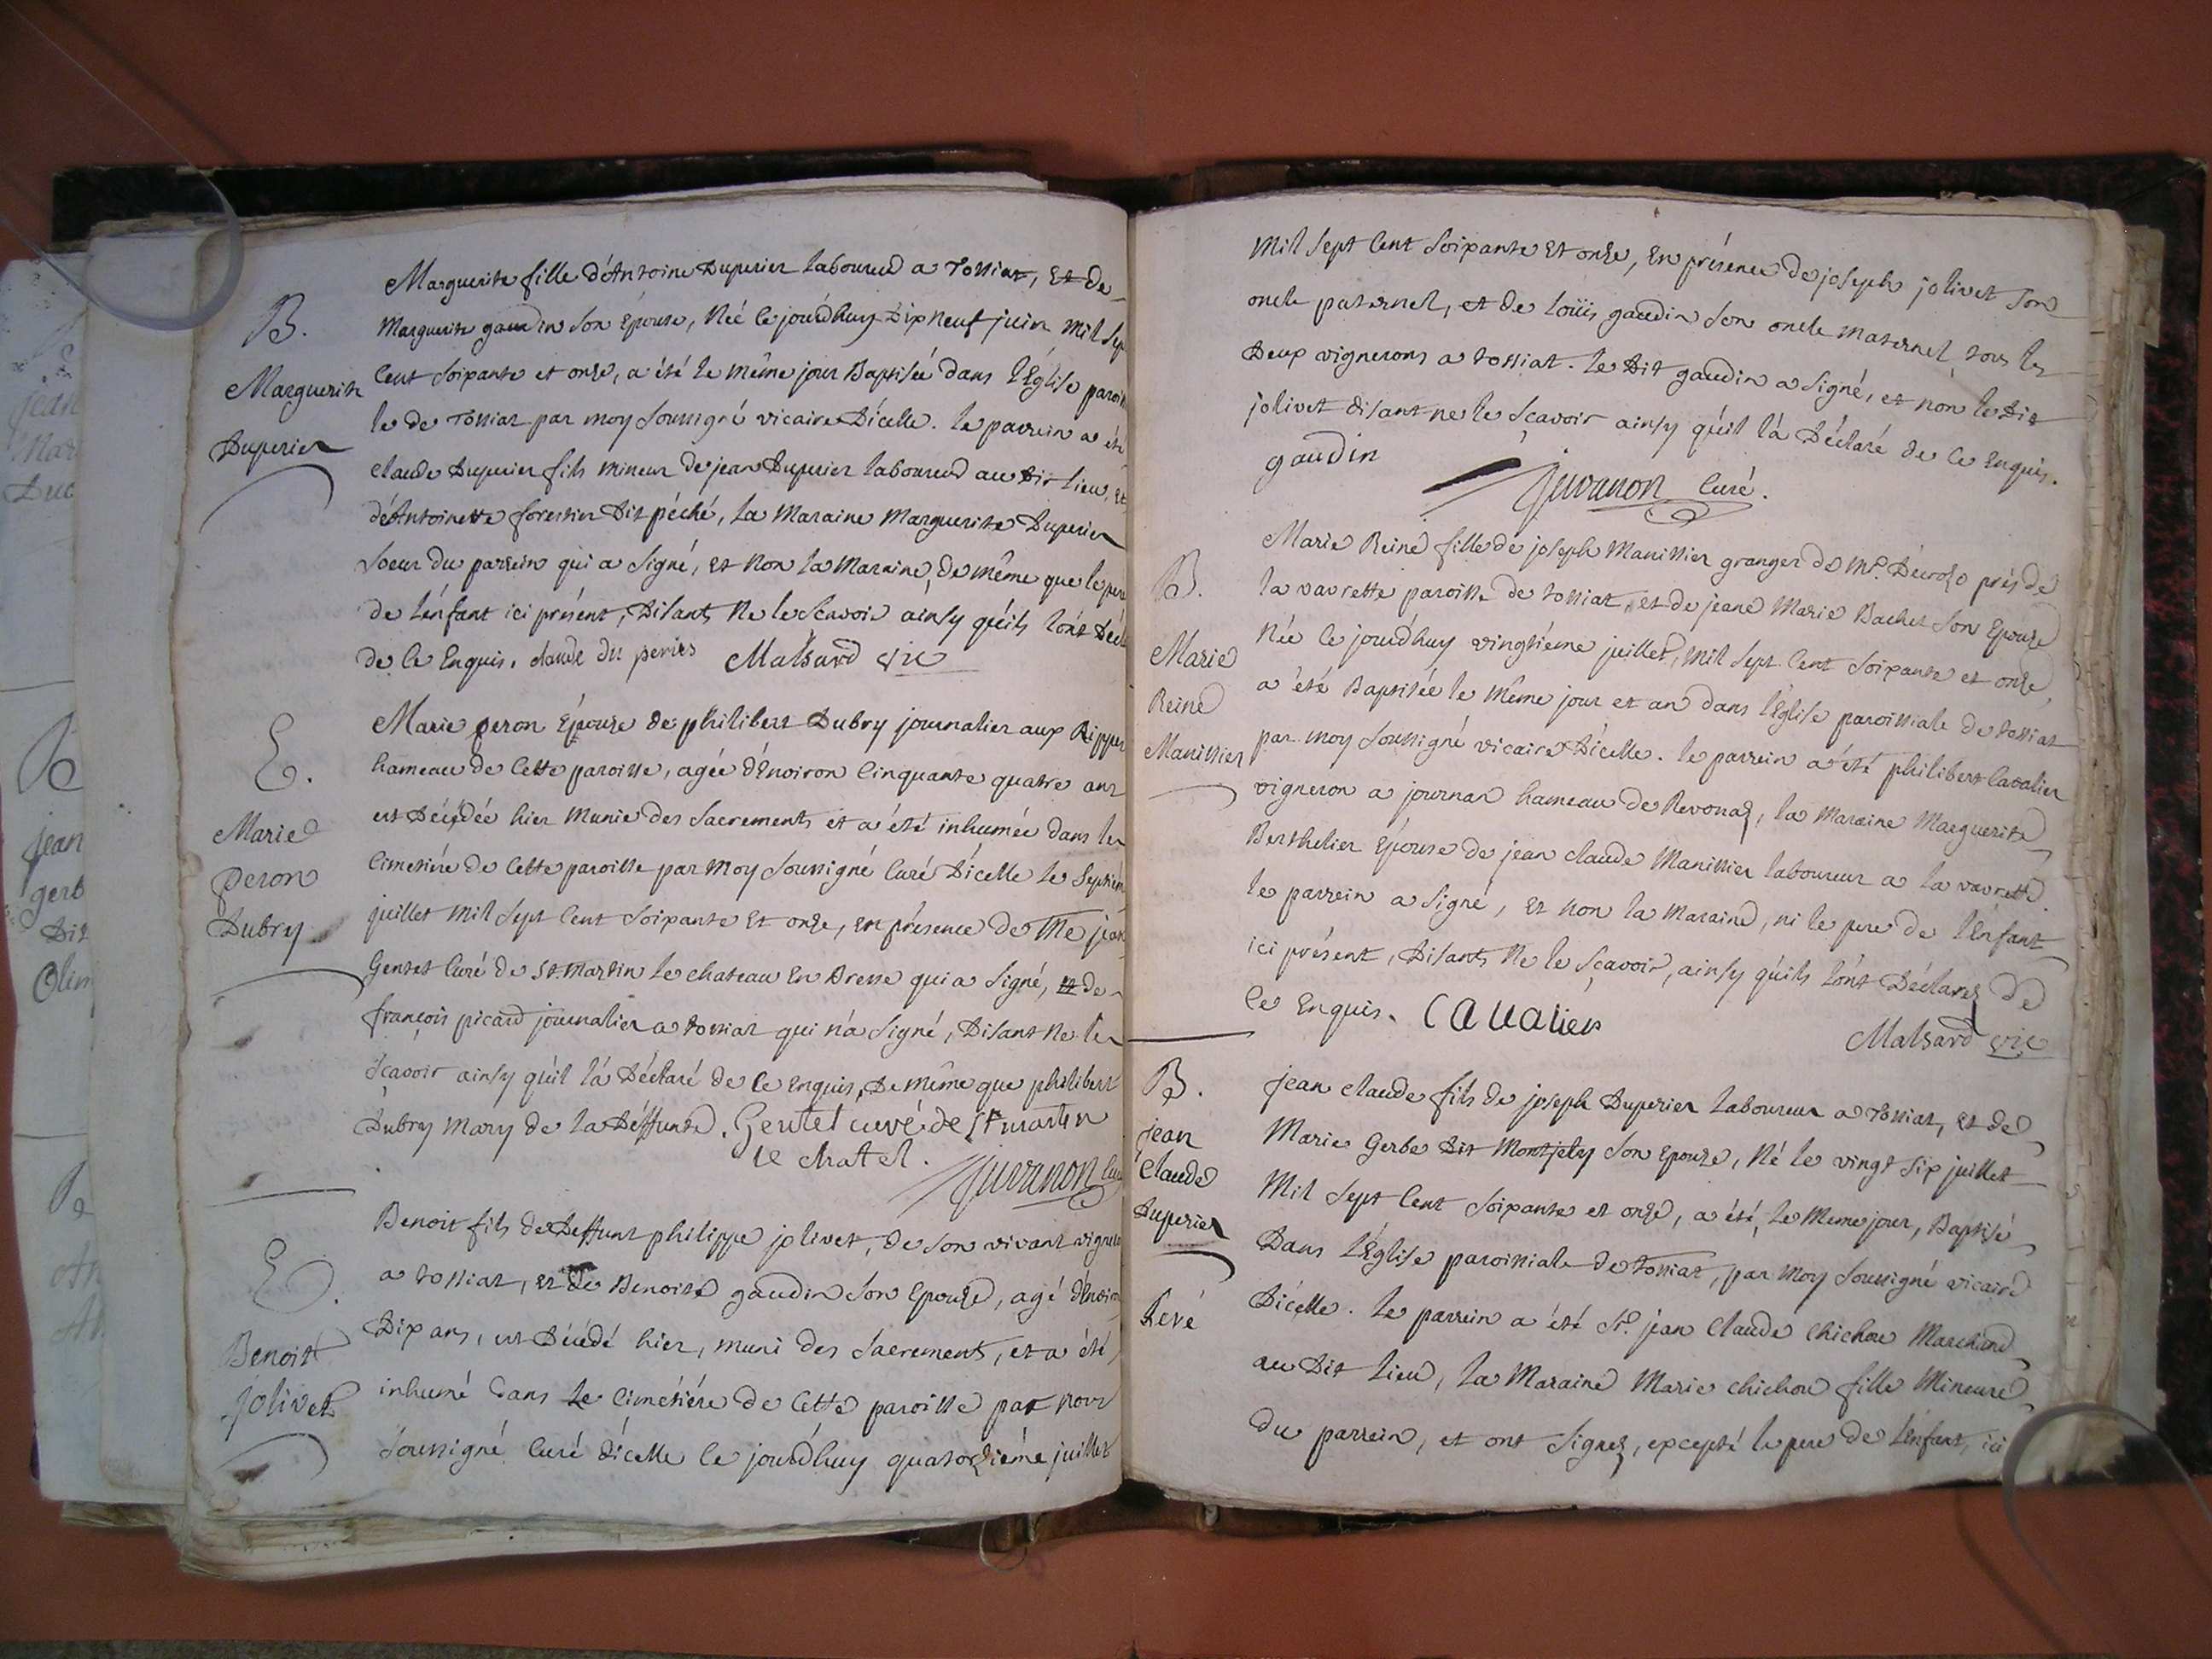 B.
Marguerite
Duperier
Marguerite fille d'Antoine Duperier laboureur a Tossiat, Et de
Marguerite gaudin son Epouse, Née ce jourd'huy Dix Neuf juin Mil Sep
Cent soixante et onze, a été le même jour Baptisée dans l'Église parois
le de Tossiat par moy soussigné vicaire D'icelle. le parrein a été
claude Duperier fils mineur de jean Duperier laboureur au Dit lieu, et
d'Antoinette forestier Dit péché, la Maraine Marguerite Duperier
Soeur du parrein qui a signé, et Non la Maraine, de même que le pere
de l'enfant ici présent, Disants Ne le Scavoir ainsy qu'ils l'ont Décla
de ce Enquis. claude du perier Malsard vic
E.
Marie
peron
Dubry
Marie peron Épouse de philibert Dubry journalier aux Rippes
hameau de Cette paroisse, agée d'Environ Cinquante quatre ans
est Décédée hier Munie des Sacrements et a été inhumée dans le
Cimetiére de Cette paroisse par Moy Soussigné Curé D'icelle le Septiém
juillet Mil Sept Cent Soixante Et onze, en présence de Me jean
Gentet Curé de St. Martin le chateau En Bresse qui a Signé, et de
françois picard journalier a tossiat qui n'a Signé, Disant Ne le
Scavoir ainsy qu'il l'a Déclaré de Ce Enquis, De même que philibert
Dubry Mary de la Deffunte. Gentet curé de St martin
le chatel.
Juvanon Cu
E.
Benoist
jolivet
Benoit fils de Deffunt philippe jolivet, de son vivant vigneron
a tossiat, et de Benoite gaudin Son Epouse, agé d'Enviro
Dix ans, est Décédé hier, muni des Sacrements, et a été
inhumé dans le Cimétiére de Cette paroisse par Nous
Soussigné Curé d'icelle ce jourd'huy quatorziéme juillet
Mil Sept Cent Soixante Et onze, En présence de joseph jolivet Son
oncle paternel, et de Loüis gaudin Son oncle Maternel, tous les
Deux vignerons a tossiat. le Dit gaudin a Signé, et non le Dit
jolivet disant ne le Scavoir ainsy qu'il l'a Déclaré de Ce Enquis.
gaudin
Juvanon Curé.
B.
Marie
Reine
Manissier
Marie Reine fille de joseph Manissier granger de Mr. Ducrozo prés de
la vavrette paroisse de tossiat, et de jeane Marie Bachet Son Epouse
Née ce jourd'huy vingtiéme juillet, Mil Sept Cent Soixante et onze,
a été Baptisée le Même jour et an dans l'Église paroissiale de tossiat
par moy Soussigné vicaire D'icelle. le parrein a été philibert Cavalier
vigneron a journan hameau de Revonaz, la Maraine Marguerite
Berthelier Épouse de jean claude Manissier laboureur a la vavrette.
le parrein a Signé, et non la Maraine, ni le pere de l'Enfant
ici présent, Disants Ne le Sçavoir, ainsy qu'ils l'ont Déclarez de
Ce Enquis. Cavalier
Malsard vic
B.
jean
Claude
Duperier
Levé
jean claude fils de joseph Duperier laboureur a Tossiat, et de
Marie Gerbe Dit Montjely Son Epouse, Né le vingt Six juillet
Mil Sept Cent Soixante et onze, a été, le Meme jour, Baptisé
Dans l'Église paroissiale de tossiat, par Moy Soussigné vicaire
D'icelle. le parrein a été Sr. jean Claude Chichou Marchand
au Dit lieu, la Maraine Marie Chichou fille Mineure
du parrein, et ont Signez, excepté le pere de l'Enfant, ici